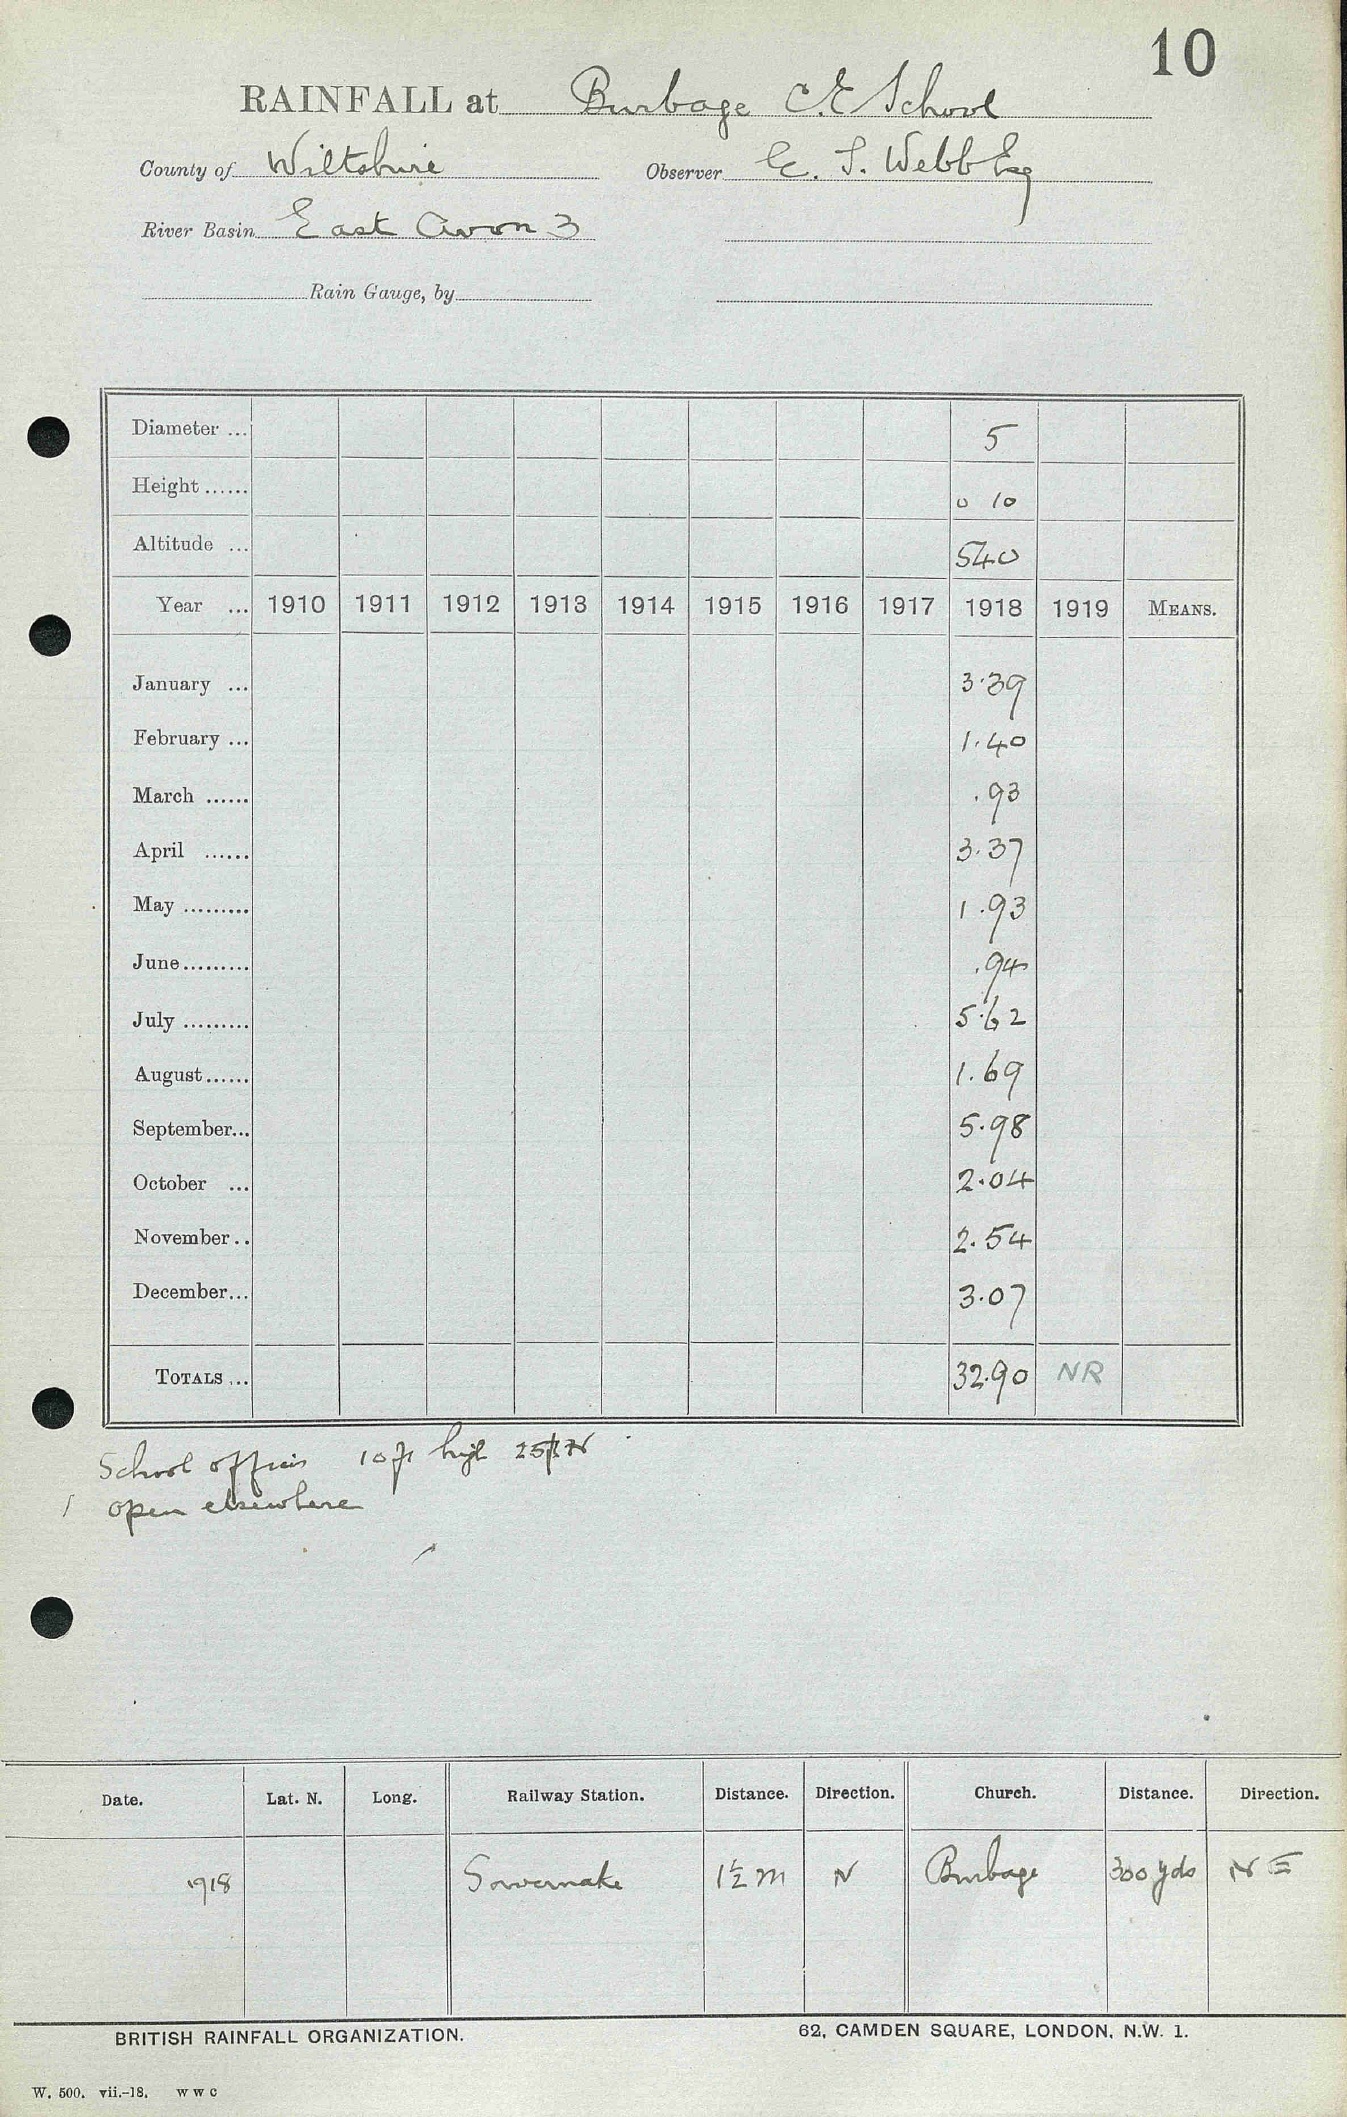 10
RAINFALL at Burbage C.E School
County of Wiltshire Observer E. S. Webb Esq
River Basin East Avon 3
Rain Gauge, by
Diameter ... 5
Height ...... 0 10
Altitude ... 540
Year ... 1910 1911 1912 1913 1914 1915 1916 1917 1918 1919 MEANS.
January ... 3.39
February ... 1.40
March ...... .93
April ...... 3.37
May ......... 1.93
June ......... .94
July ......... 5.62
August ...... 1.69
September... 5.98
October ... 2.04
November .. 2.54
December... 3.07
TOTALS ... 32.90 NR
School offices 10ft high 25ft N
open elsewhere
Date. Lat. N. Long. Railway Station. Distance. Direction. Church. Distance. Direction.
1918 Savernake 1½ m N Burbage 300 yds NE
BRITISH RAINFALL ORGANIZATION. 62, CAMDEN SQUARE, LONDON, N.W. 1.
W. 500. vii.-18. W W C